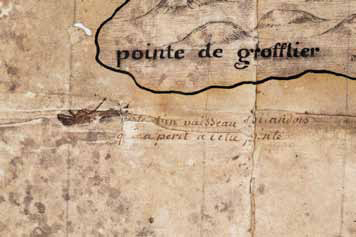 pointe de grofflier
un vaisseau
perit a cette pointe